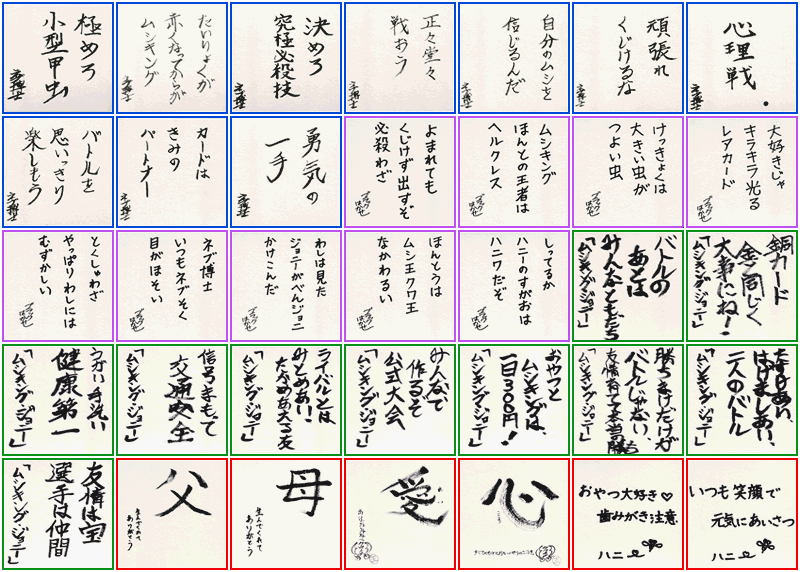 極めろ
小型甲虫
たいりょくが
赤くなってからが
ムシキング
決めろ
究極必殺技
正々堂々
戦おう
自分のムシを
信じるんだ
頑張れ
くじけるな
心理戦。
バトルを
思いっきり
楽しもう
カードは
きみの
パートナー
勇気の
一手
よまれても
くじけず出すぞ
必殺わざ
ムシキング
ほんとの王者は
ヘルクレス
けっきょくは
大きい虫が
つよい虫
大好きじゃ
キラキラ光る
レアカード
とくしゅわざ
やっぱりわしには
むずかしい
ネブ博士
いつもネブそく
目がほそい
わしは見た
ジョニーがべんジョニ
かけこんだ
ほんとうは
ムシ王クワ王
なかわるい
しってるか
ハニーのすがおは
ハニワだぞ
バトルの
あとは
みんなともだち
「ムシキング・ジョニー」
銅カード
金と同じく
大事にね!
「ムシキング・ジョニー」
うがい手洗い
健康第一
「ムシキング・ジョニー」
信号まもって
交通安全
「ムシキング・ジョニー」
ライバルとは
みとめあい、
たかめあえる友
「ムシキング・ジョニー」
みんなで
作るぞ
公式大会
「ムシキング・ジョニー」
おやつと
ムシキングは、
一日300円!
「ムシキング・ジョニー」
勝ちまけだけが
バトルじゃない、
「ムシキング・ジョニー」
たすけあい、
はげましあい、
二人のバトル
「ムシキング・ジョニー」
友情は宝
選手は仲間
「ムシキング・ジョニー」
父
生んでくれて
ありがとう
母
生んでくれて
ありがとう
愛
心
おやつ大好き♡
歯みがき注意
ハニー
いつも笑顔で
元気にあいさつ
ハニー